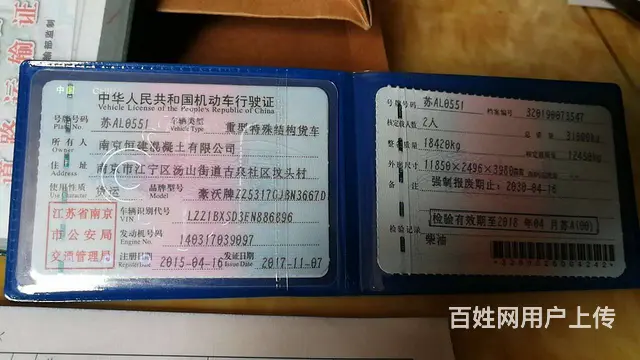 中国
中华人民共和国机动车行驶证
Vehicle License of the People's Republic of China
号牌号码 苏AL0551 车辆类型 重型特殊结构货车
Plate No. Vehicle Type
所有人 南京恒建混凝土有限公司
Owner
住址 南京市江宁区汤山街道古泉社区坟头村
Address
使用性质 货运 品牌型号 豪沃牌ZZ5317GJBN3667D
Use Character Model
江苏省南京
市公安局
交通管理局
车辆识别代号 LZZ1BXSD3EN886896
VIN
发动机号码 140317039097
Engine No.
注册日期 2015-04-16 发证日期 2017-11-07
Register Date Issue Date
号牌号码 苏AL0551 档案编号 320190073547
核定载人数 2人 总质量
整备质量 18420kg
外廓尺寸 11850×2496×3980mm
备注 强制报废期止：2030-04-16
检验有效期至2018年04月苏A(00)
检验记录
柴油
道路运输证
百姓网用户上传